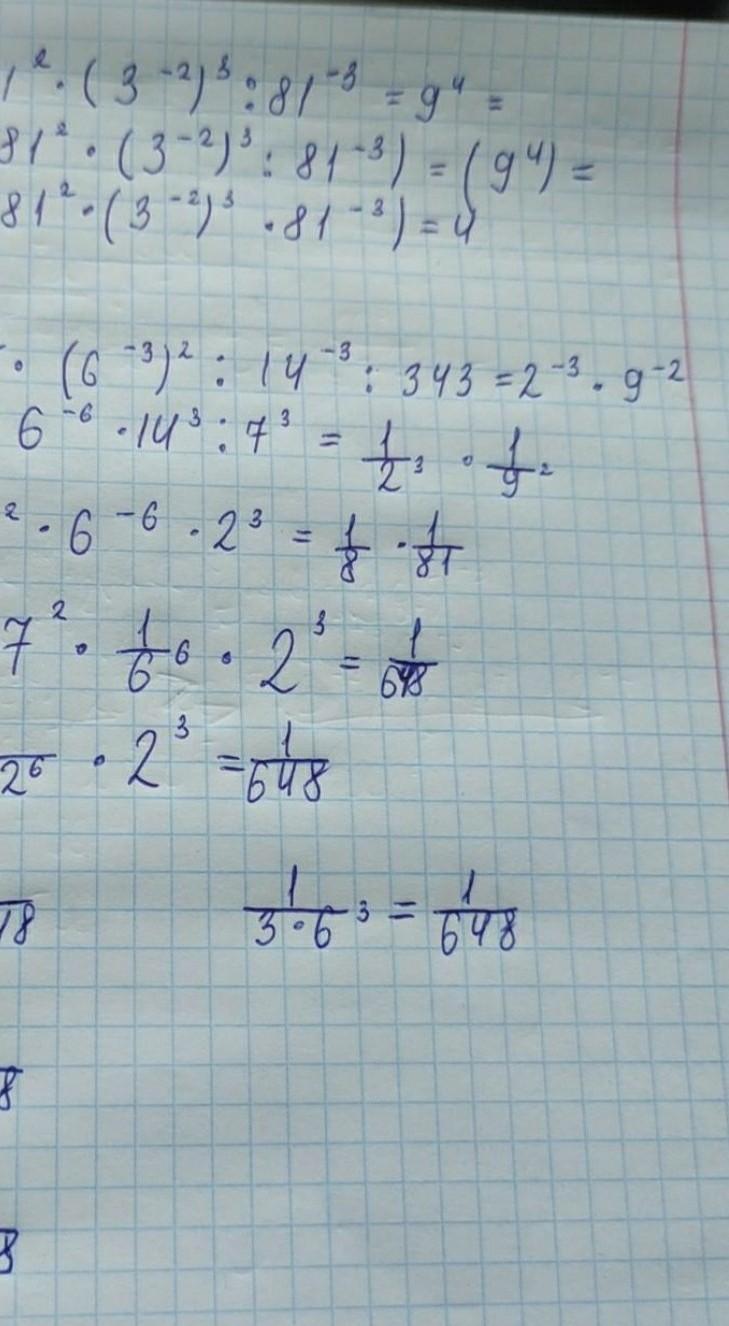 1² · (3⁻²)³ : 81⁻³ = 9⁴ =
81² · (3⁻²)³ : 81⁻³) = (9⁴) =
81² · (3⁻²)³ · 81⁻³) = 4
· (6⁻³)² : 14⁻³ : 343 = 2⁻³ · 9⁻²
6⁻⁶ · 14³ : 7³ = 1/2³ · 1/9²
² · 6⁻⁶ · 2³ = 1/8 · 1/81
7² · 1/6⁶ · 2³ = 1/648
/2⁶ · 2³ = 1/648
18 1/3·6³ = 1/648
8
8